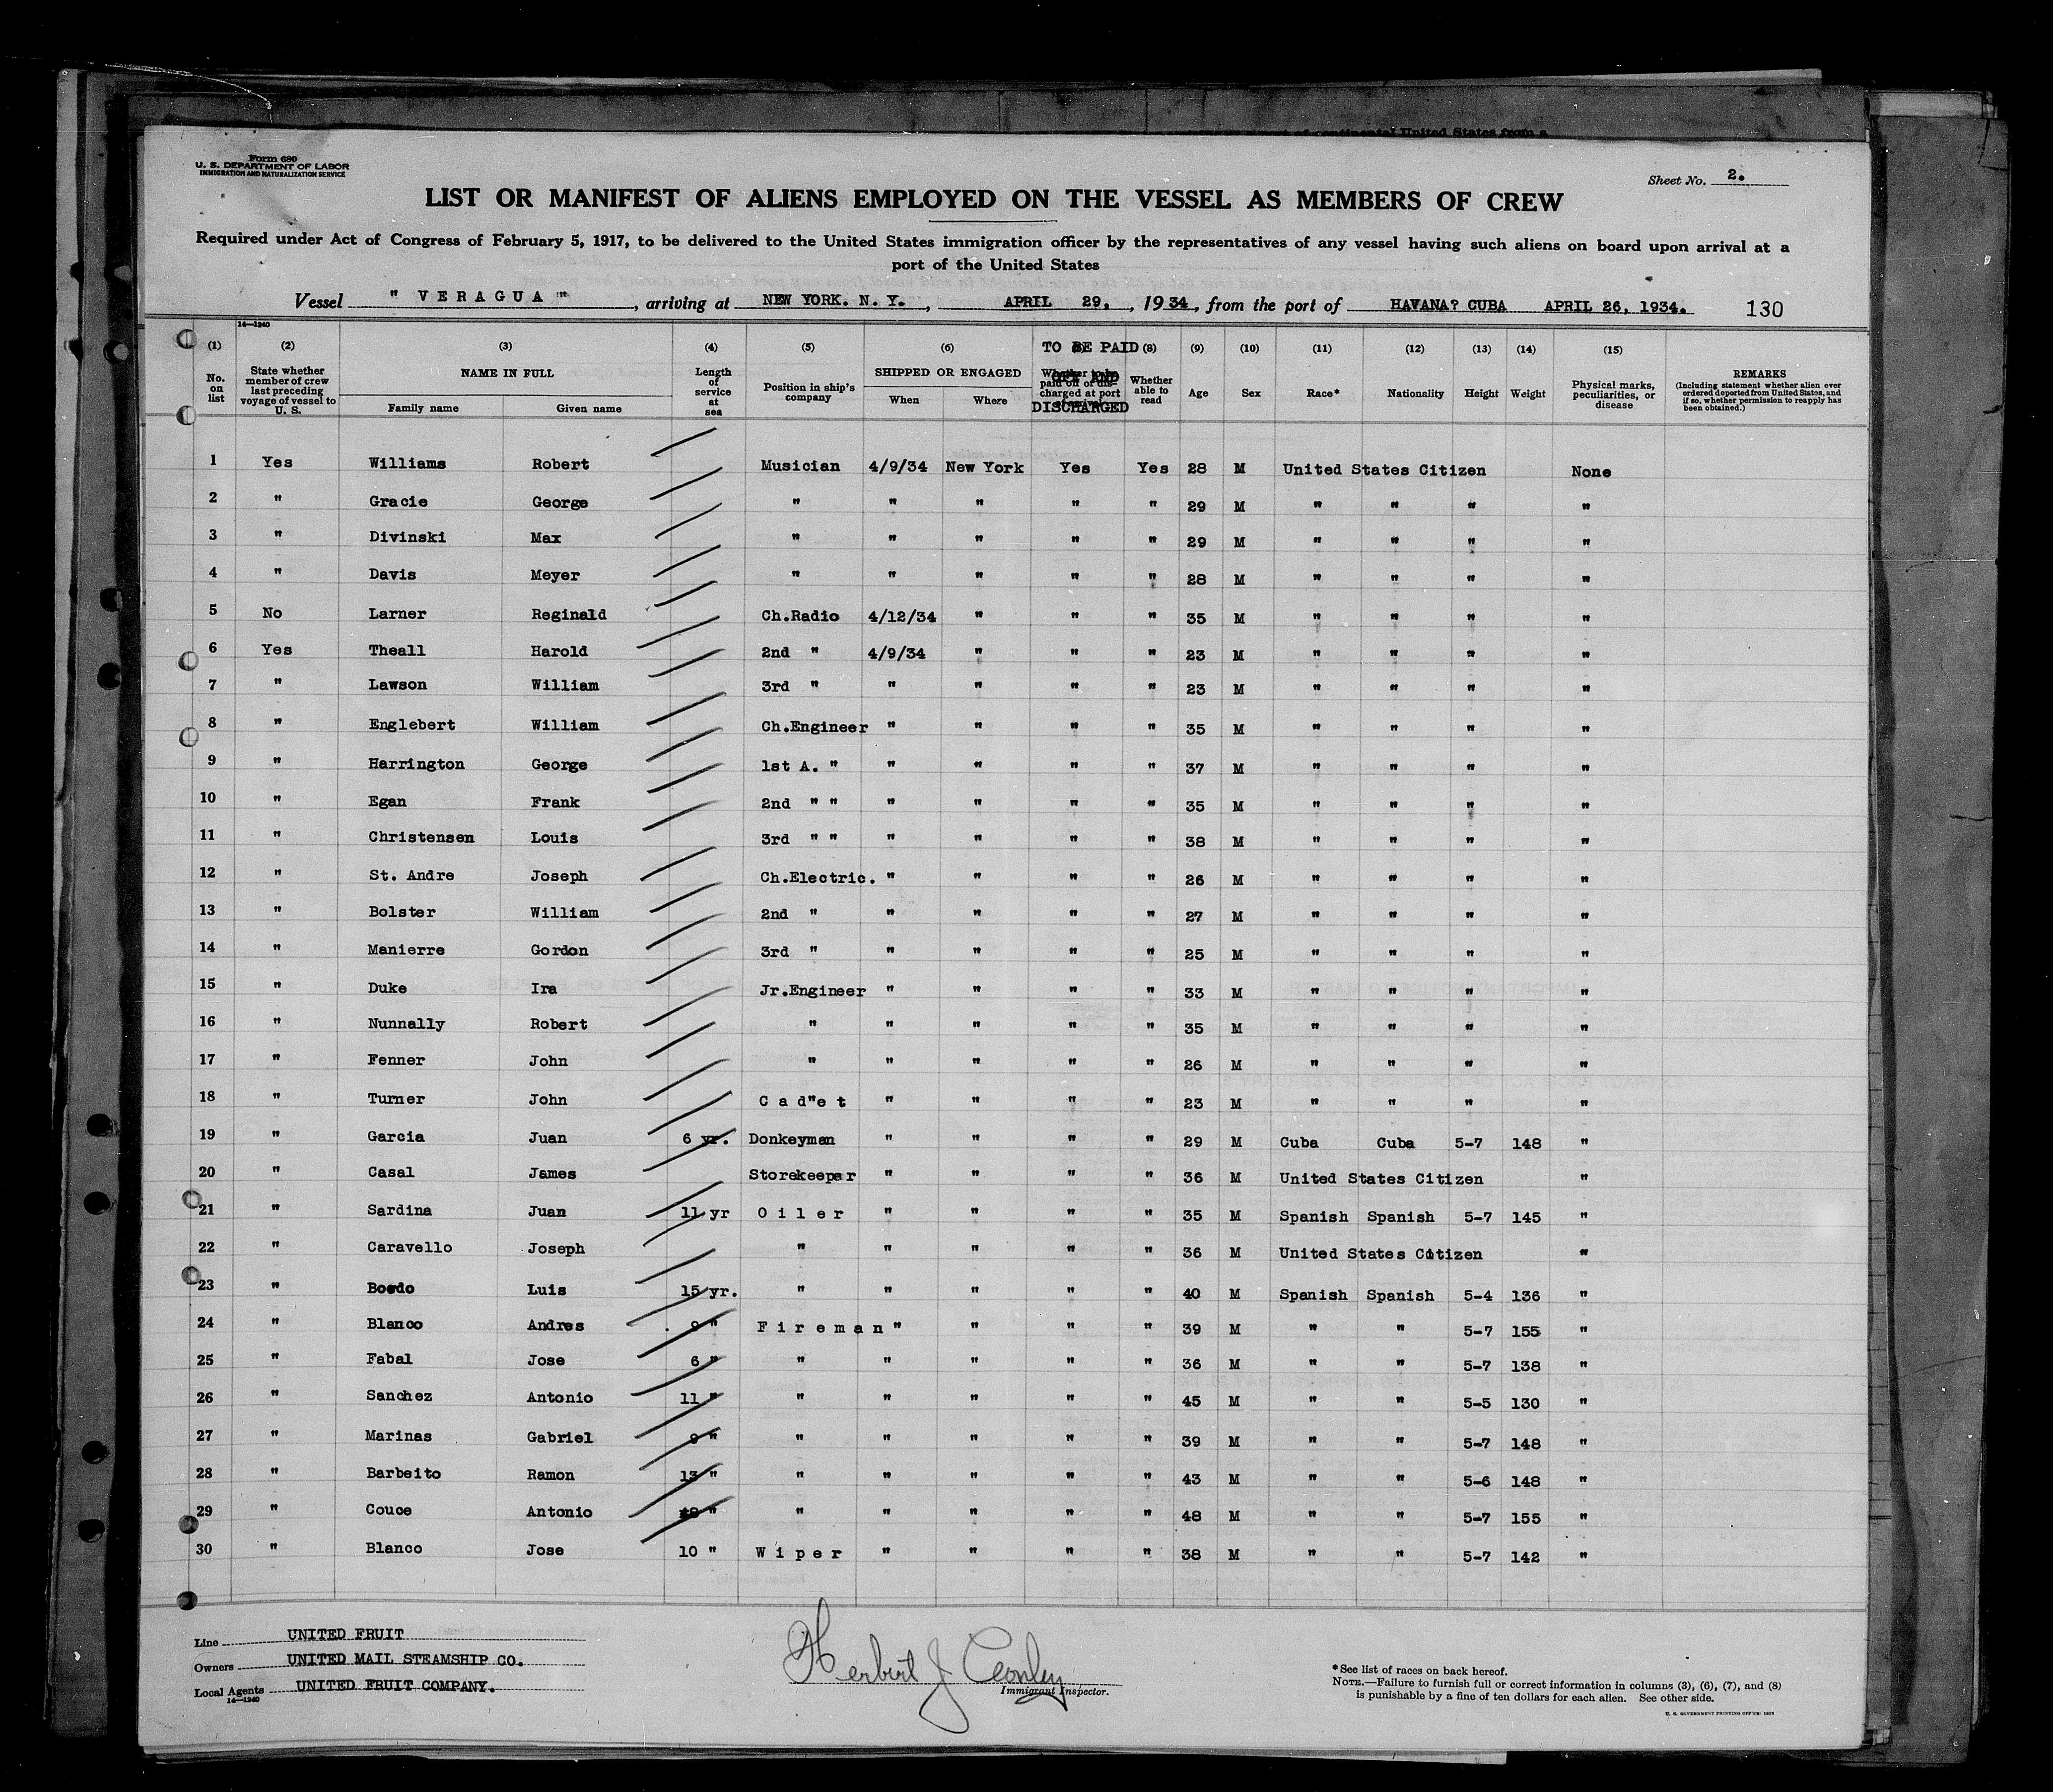 of continental United States from a
Form 680
U. S. DEPARTMENT OF LABOR
IMMIGRATION AND NATURALIZATION SERVICE
Sheet No. 2.
LIST OR MANIFEST OF ALIENS EMPLOYED ON THE VESSEL AS MEMBERS OF CREW
Required under Act of Congress of February 5, 1917, to be delivered to the United States immigration officer by the representatives of any vessel having such aliens on board upon arrival at a
port of the United States
Vessel " VERAGUA ", arriving at NEW YORK. N. Y., APRIL 29, , 1934, from the port of HAVANA? CUBA APRIL 26, 1934. 130
14—1240
(1) (2) (3) (4) (5) (6) TO BE PAID (8) (9) (10) (11) (12) (13) (14) (15)
No. on list State whether member of crew last preceding voyage of vessel to U. S. NAME IN FULL Family name Given name Length of service at sea Position in ship's company SHIPPED OR ENGAGED When Where OFF AND DISCHARGED Whether to be paid off or discharged at port of arrival Whether able to read Age Sex Race* Nationality Height Weight Physical marks, peculiarities, or disease REMARKS (Including statement whether alien ever ordered deported from United States, and if so, whether permission to reapply has been obtained.)
1 Yes Williams Robert Musician 4/9/34 New York Yes Yes 28 M United States Citizen None
2 " Gracie George " " " " " 29 M " " " "
3 " Divinski Max " " " " " 29 M " " " "
4 " Davis Meyer " " " " " 28 M " " " "
5 No Larner Reginald Ch.Radio 4/12/34 " " " 35 M " " " "
6 Yes Theall Harold 2nd " 4/9/34 " " " 23 M " " " "
7 " Lawson William 3rd " " " " " 23 M " " " "
8 " Englebert William Ch.Engineer " " " " 35 M " " " "
9 " Harrington George 1st A. " " " " " 37 M " " " "
10 " Egan Frank 2nd " " " " " " 35 M " " " "
11 " Christensen Louis 3rd " " " " " " 38 M " " " "
12 " St. Andre Joseph Ch.Electric. " " " " 26 M " " " "
13 " Bolster William 2nd " " " " " 27 M " " " "
14 " Manierre Gordon 3rd " " " " " 25 M " " " "
15 " Duke Ira Jr.Engineer " " " " 33 M " " " "
16 " Nunnally Robert " " " " " 35 M " " " "
17 " Fenner John " " " " " 26 M " " " "
18 " Turner John C a d"e t " " " " 23 M " " " "
19 " Garcia Juan 6 yr. Donkeyman " " " " 29 M Cuba Cuba 5-7 148 "
20 " Casal James Storekeeper " " " " 36 M United States Citizen "
21 " Sardina Juan 11 yr O i l e r " " " " 35 M Spanish Spanish 5-7 145 "
22 " Caravello Joseph " " " " " 36 M United States Citizen "
23 " Boedo Luis 15 yr. " " " " " 40 M Spanish Spanish 5-4 136 "
24 " Blanco Andres 9 " F i r e m a n " " " " 39 M " " 5-7 155 "
25 " Fabal Jose 6 " " " " " " 36 M " " 5-7 138 "
26 " Sanchez Antonio 11 " " " " " " 45 M " " 5-5 130 "
27 " Marinas Gabriel 9 " " " " " " 39 M " " 5-7 148 "
28 " Barbeito Ramon 13 " " " " " " 43 M " " 5-6 148 "
29 " Couce Antonio " " " " " " 48 M " " 5-7 155 "
30 " Blanco Jose 10 " W i p e r " " " " 38 M " " 5-7 142 "
Line UNITED FRUIT
Owners UNITED MAIL STEAMSHIP CO.
Local Agents UNITED FRUIT COMPANY.
14—1240
Herbert J Conley
Immigrant Inspector.
*See list of races on back hereof.
NOTE.—Failure to furnish full or correct information in columns (3), (6), (7), and (8)
is punishable by a fine of ten dollars for each alien. See other side.
U. S. GOVERNMENT PRINTING OFFICE: